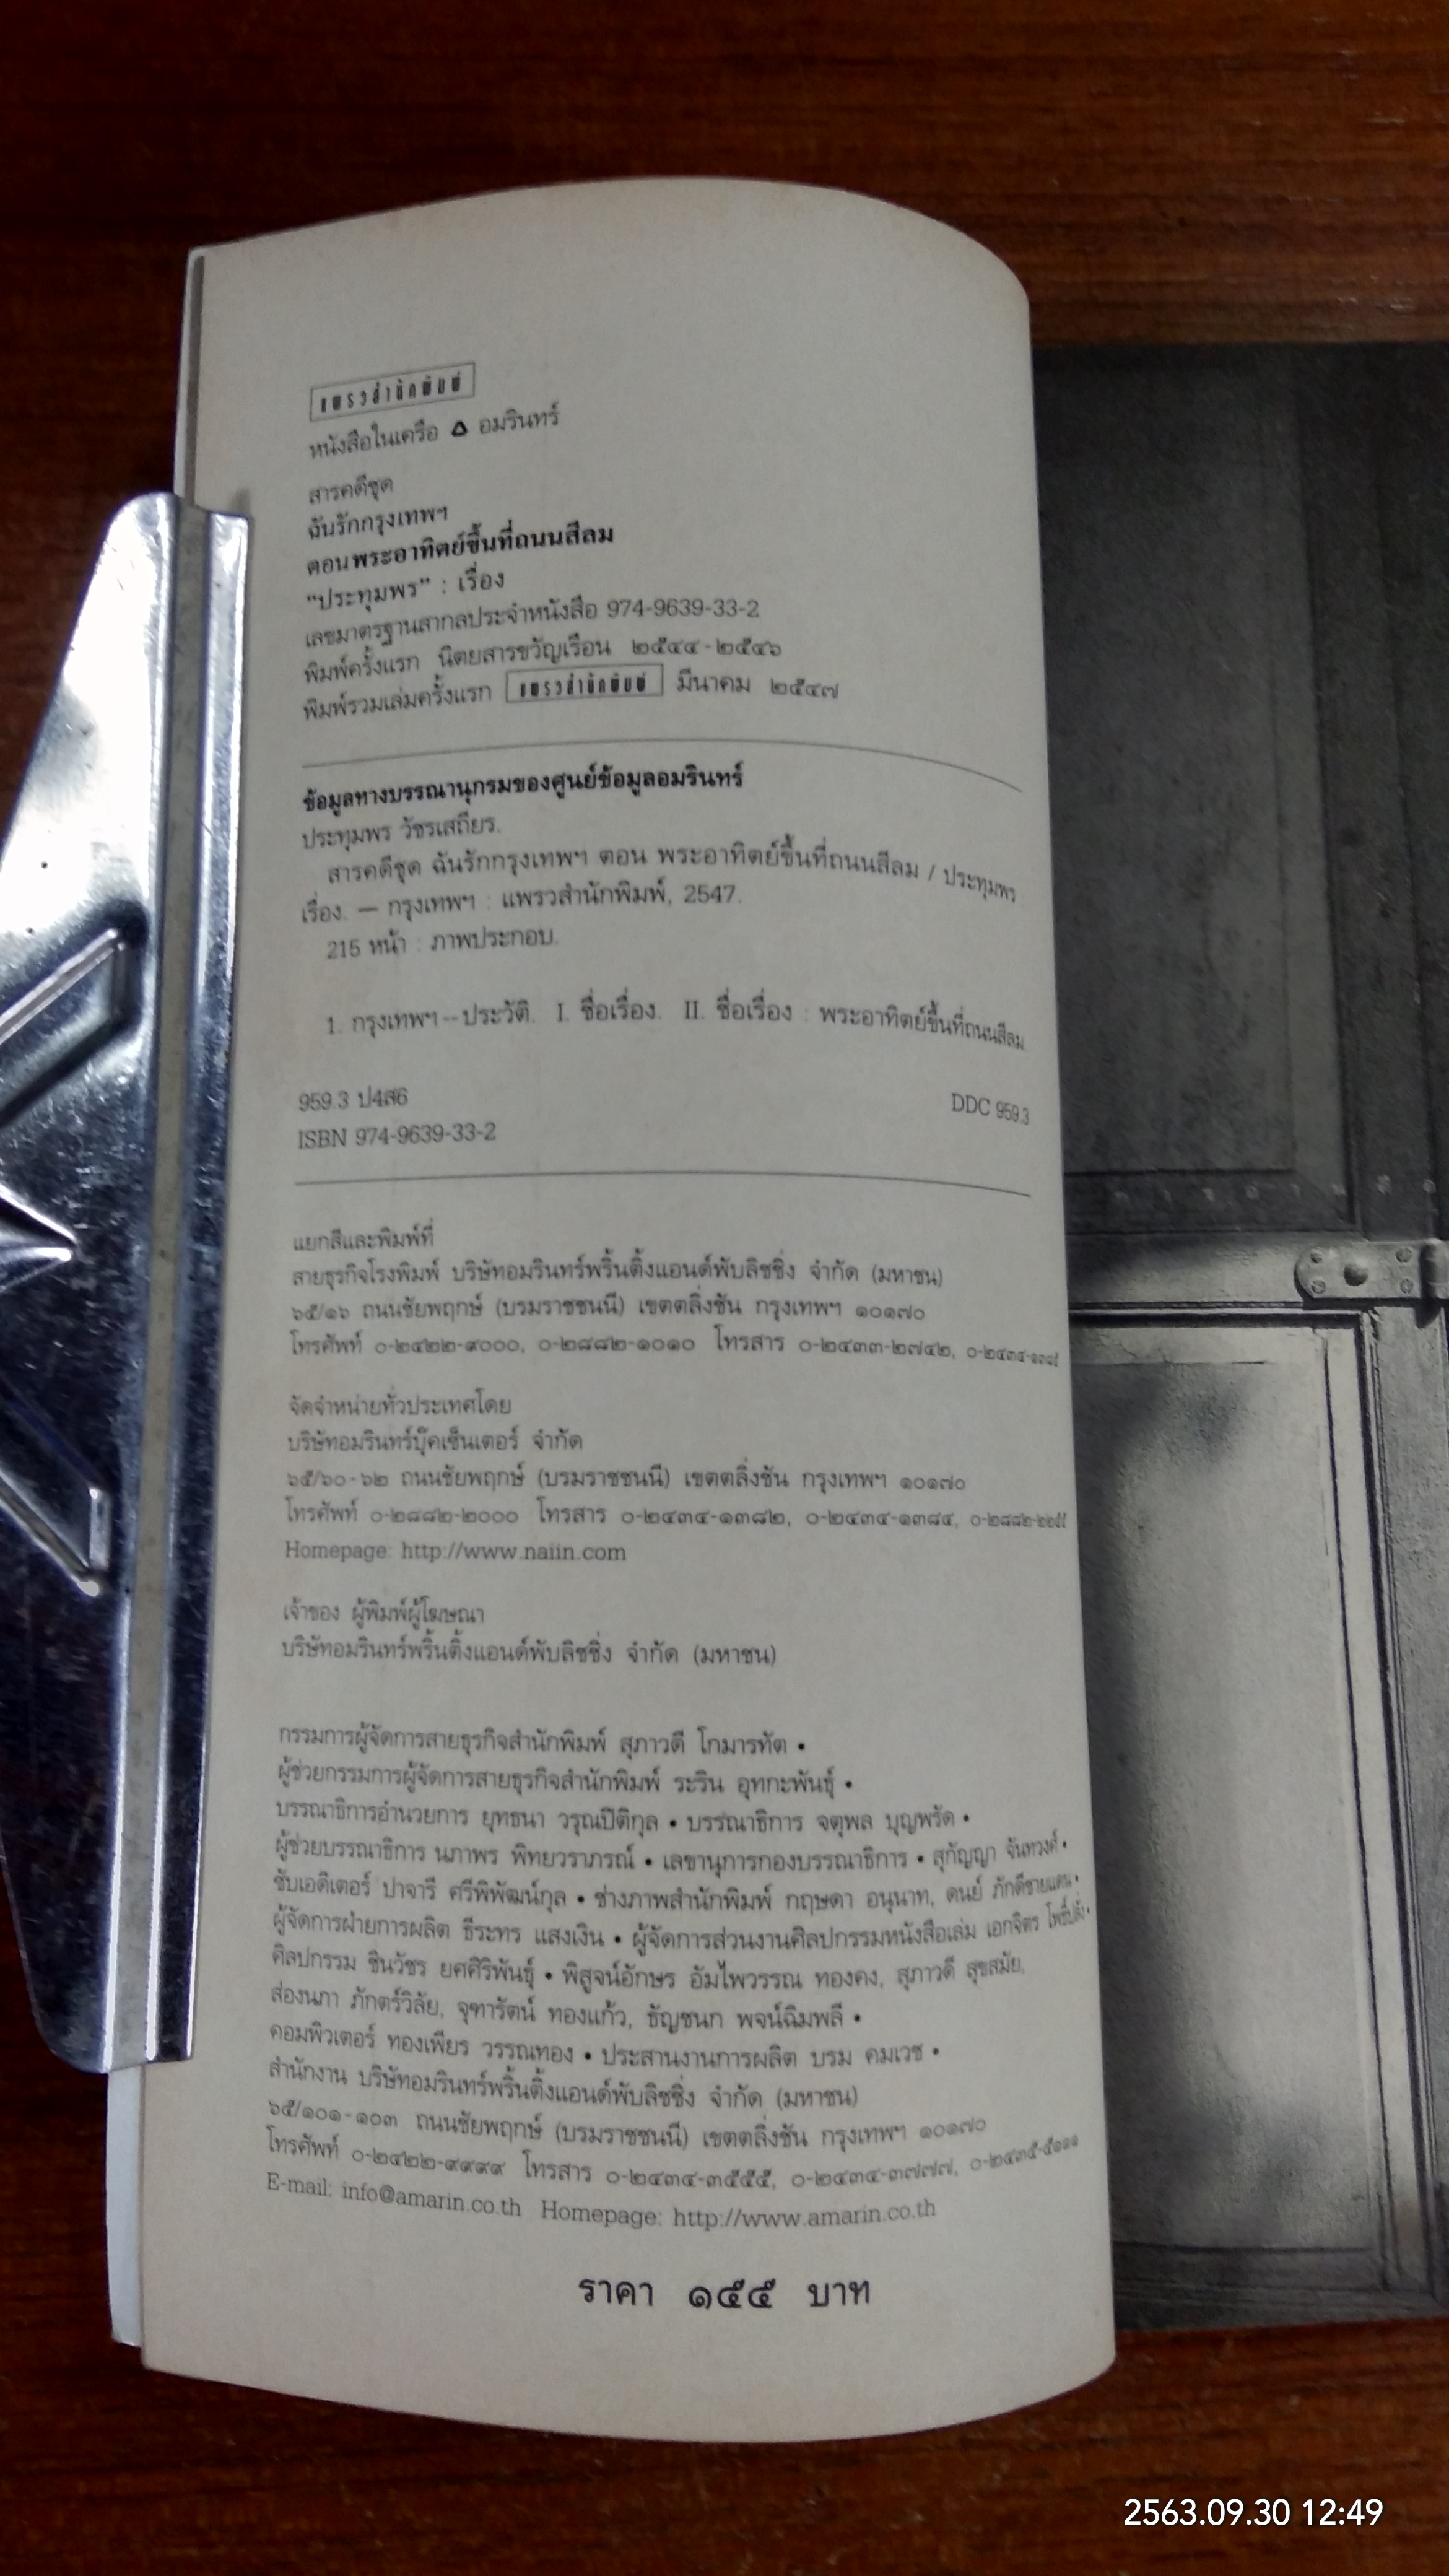 แพรวสำนักพิมพ์
หนังสือในเครือ อมรินทร์
สารคดีชุด
ฉันรักกรุงเทพฯ
ตอนพระอาทิตย์ขึ้นที่ถนนสีลม
“ประทุมพร” : เรื่อง
เลขมาตรฐานสากลประจำหนังสือ 974-9639-33-2
พิมพ์ครั้งแรก นิตยสารขวัญเรือน ๒๕๔๔-๒๕๔๖
พิมพ์รวมเล่มครั้งแรก แพรวสำนักพิมพ์ มีนาคม ๒๕๔๗
ข้อมูลทางบรรณานุกรมของศูนย์ข้อมูลอมรินทร์
ประทุมพร วัชรเสถียร.
สารคดีชุด ฉันรักกรุงเทพฯ ตอน พระอาทิตย์ขึ้นที่ถนนสีลม / ประทุมพร
เรื่อง. — กรุงเทพฯ : แพรวสำนักพิมพ์, 2547.
215 หน้า : ภาพประกอบ.
1. กรุงเทพฯ--ประวัติ. I. ชื่อเรื่อง. II. ชื่อเรื่อง : พระอาทิตย์ขึ้นที่ถนนสีลม
959.3 ป4ส6 DDC 959.3
ISBN 974-9639-33-2
แยกสีและพิมพ์ที่
สายธุรกิจโรงพิมพ์ บริษัทอมรินทร์พริ้นติ้งแอนด์พับลิชชิ่ง จำกัด (มหาชน)
๖๕/๑๖ ถนนชัยพฤกษ์ (บรมราชชนนี) เขตตลิ่งชัน กรุงเทพฯ ๑๐๑๗๐
โทรศัพท์ ๐-๒๔๒๒-๙๐๐๐, ๐-๒๘๘๒-๑๐๑๐ โทรสาร ๐-๒๔๓๓-๒๗๔๒,
จัดจำหน่ายทั่วประเทศโดย
บริษัทอมรินทร์บุ๊คเซ็นเตอร์ จำกัด
๖๕/๖๐-๖๒ ถนนชัยพฤกษ์ (บรมราชชนนี) เขตตลิ่งชัน กรุงเทพฯ ๑๐๑๗๐
โทรศัพท์ ๐-๒๘๘๒-๒๐๐๐ โทรสาร ๐-๒๔๓๔-๑๓๘๒, ๐-๒๔๓๔-๑๓๘๔,
Homepage: http://www.naiin.com
เจ้าของ ผู้พิมพ์ผู้โฆษณา
บริษัทอมรินทร์พริ้นติ้งแอนด์พับลิชชิ่ง จำกัด (มหาชน)
กรรมการผู้จัดการสายธุรกิจสำนักพิมพ์ สุภาวดี โกมารทัต •
ผู้ช่วยกรรมการผู้จัดการสายธุรกิจสำนักพิมพ์ ระริน อุทกะพันธุ์ •
บรรณาธิการอำนวยการ ยุทธนา วรุณปิติกุล • บรรณาธิการ จตุพล บุญพรัด •
ผู้ช่วยบรรณาธิการ นภาพร พิทยวราภรณ์ • เลขานุการกองบรรณาธิการ • สุกัญญา จันทวงศ์ •
ซับเอดิเตอร์ ปาจารี ศรีพิพัฒน์กุล • ช่างภาพสำนักพิมพ์ กฤษดา อนุนาท, ดนย์ ภักดีชายแดน •
ผู้จัดการฝ่ายการผลิต ธีระทร แสงเงิน • ผู้จัดการส่วนงานศิลปกรรมหนังสือเล่ม เอกจิตร
ศิลปกรรม ชินวัชร ยศศิริพันธุ์ • พิสูจน์อักษร อัมไพวรรณ ทองคง, สุภาวดี สุขสมัย,
ส่องนภา ภักตร์วิลัย, จุฑารัตน์ ทองแก้ว, ธัญชนก พจน์ฉิมพลี •
คอมพิวเตอร์ ทองเพียร วรรณทอง • ประสานงานการผลิต บรม คมเวช •
สำนักงาน บริษัทอมรินทร์พริ้นติ้งแอนด์พับลิชชิ่ง จำกัด (มหาชน)
๖๕/๑๐๑-๑๐๓ ถนนชัยพฤกษ์ (บรมราชชนนี) เขตตลิ่งชัน กรุงเทพฯ ๑๐๑๗๐
โทรศัพท์ ๐-๒๔๒๒-๙๙๙๙ โทรสาร ๐-๒๔๓๔-๓๕๕๕, ๐-๒๔๓๔-๓๗๗๗, ๐-๒๔๓๕-๕๑๑๑
E-mail: info@amarin.co.th Homepage: http://www.amarin.co.th
ราคา ๑๕๕ บาท
2563.09.30 12:49